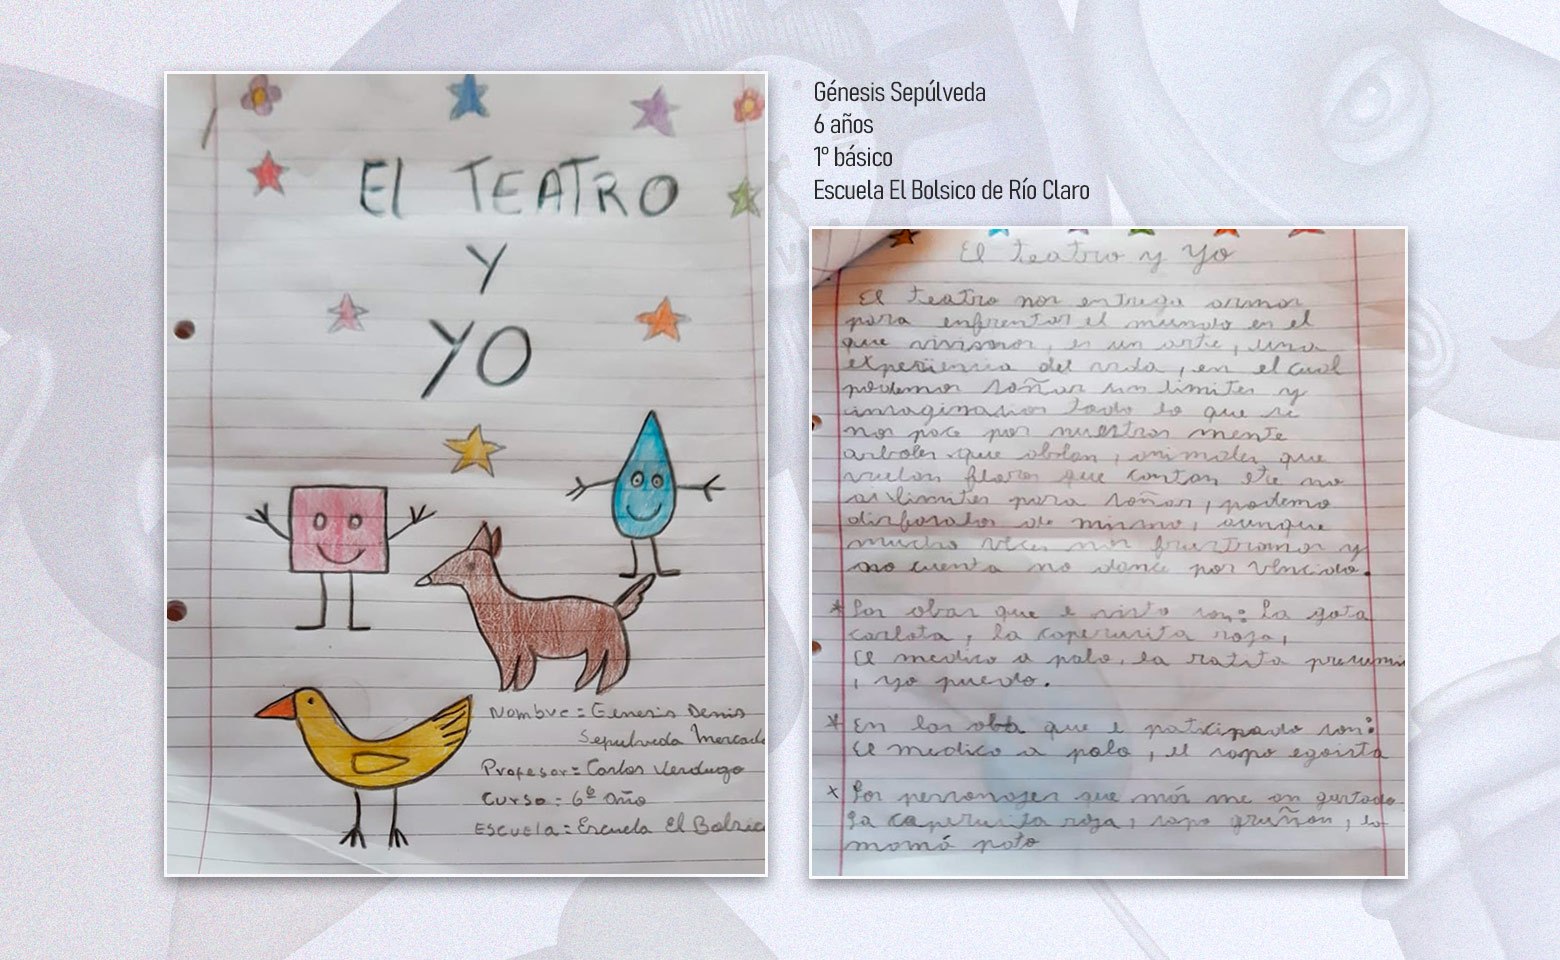 EL TEATRO
Y
YO
Nombre = Genesis Denis
Sepulveda Mercad
Profesor = Carlos Verdugo
Curso = 6º Año
Escuela = Escuela El Bolsic
Génesis Sepúlveda
6 años
1º básico
Escuela El Bolsico de Río Claro
El teatro y Yo
El teatro nos entrega armas
para enfrentar el mundo en el
que vivimos, es un arte, una
experiencia del vida, en el cual
podemos soñar sin limites y
imaginarios todo lo que se
nos pase por nuestros mente
arboles que ablan, animales que
vuelan flores que cantan etc no
as limites para soñar, podemo
disfrutalos de mismo, aunque
mucho veces nos frustramos y
no cuenta no danse por vencido.
* Las obas que e visto son: La gota
carlota, la caperusita roja,
El medico a palo, la ratita presumi
, yo puedo.
* En las oba que e paticipado son:
El medico a palo, el sapo egoista
* Los personajes que más me an gustado
La caperusita roja, sapo gruñon, la
mamá pato